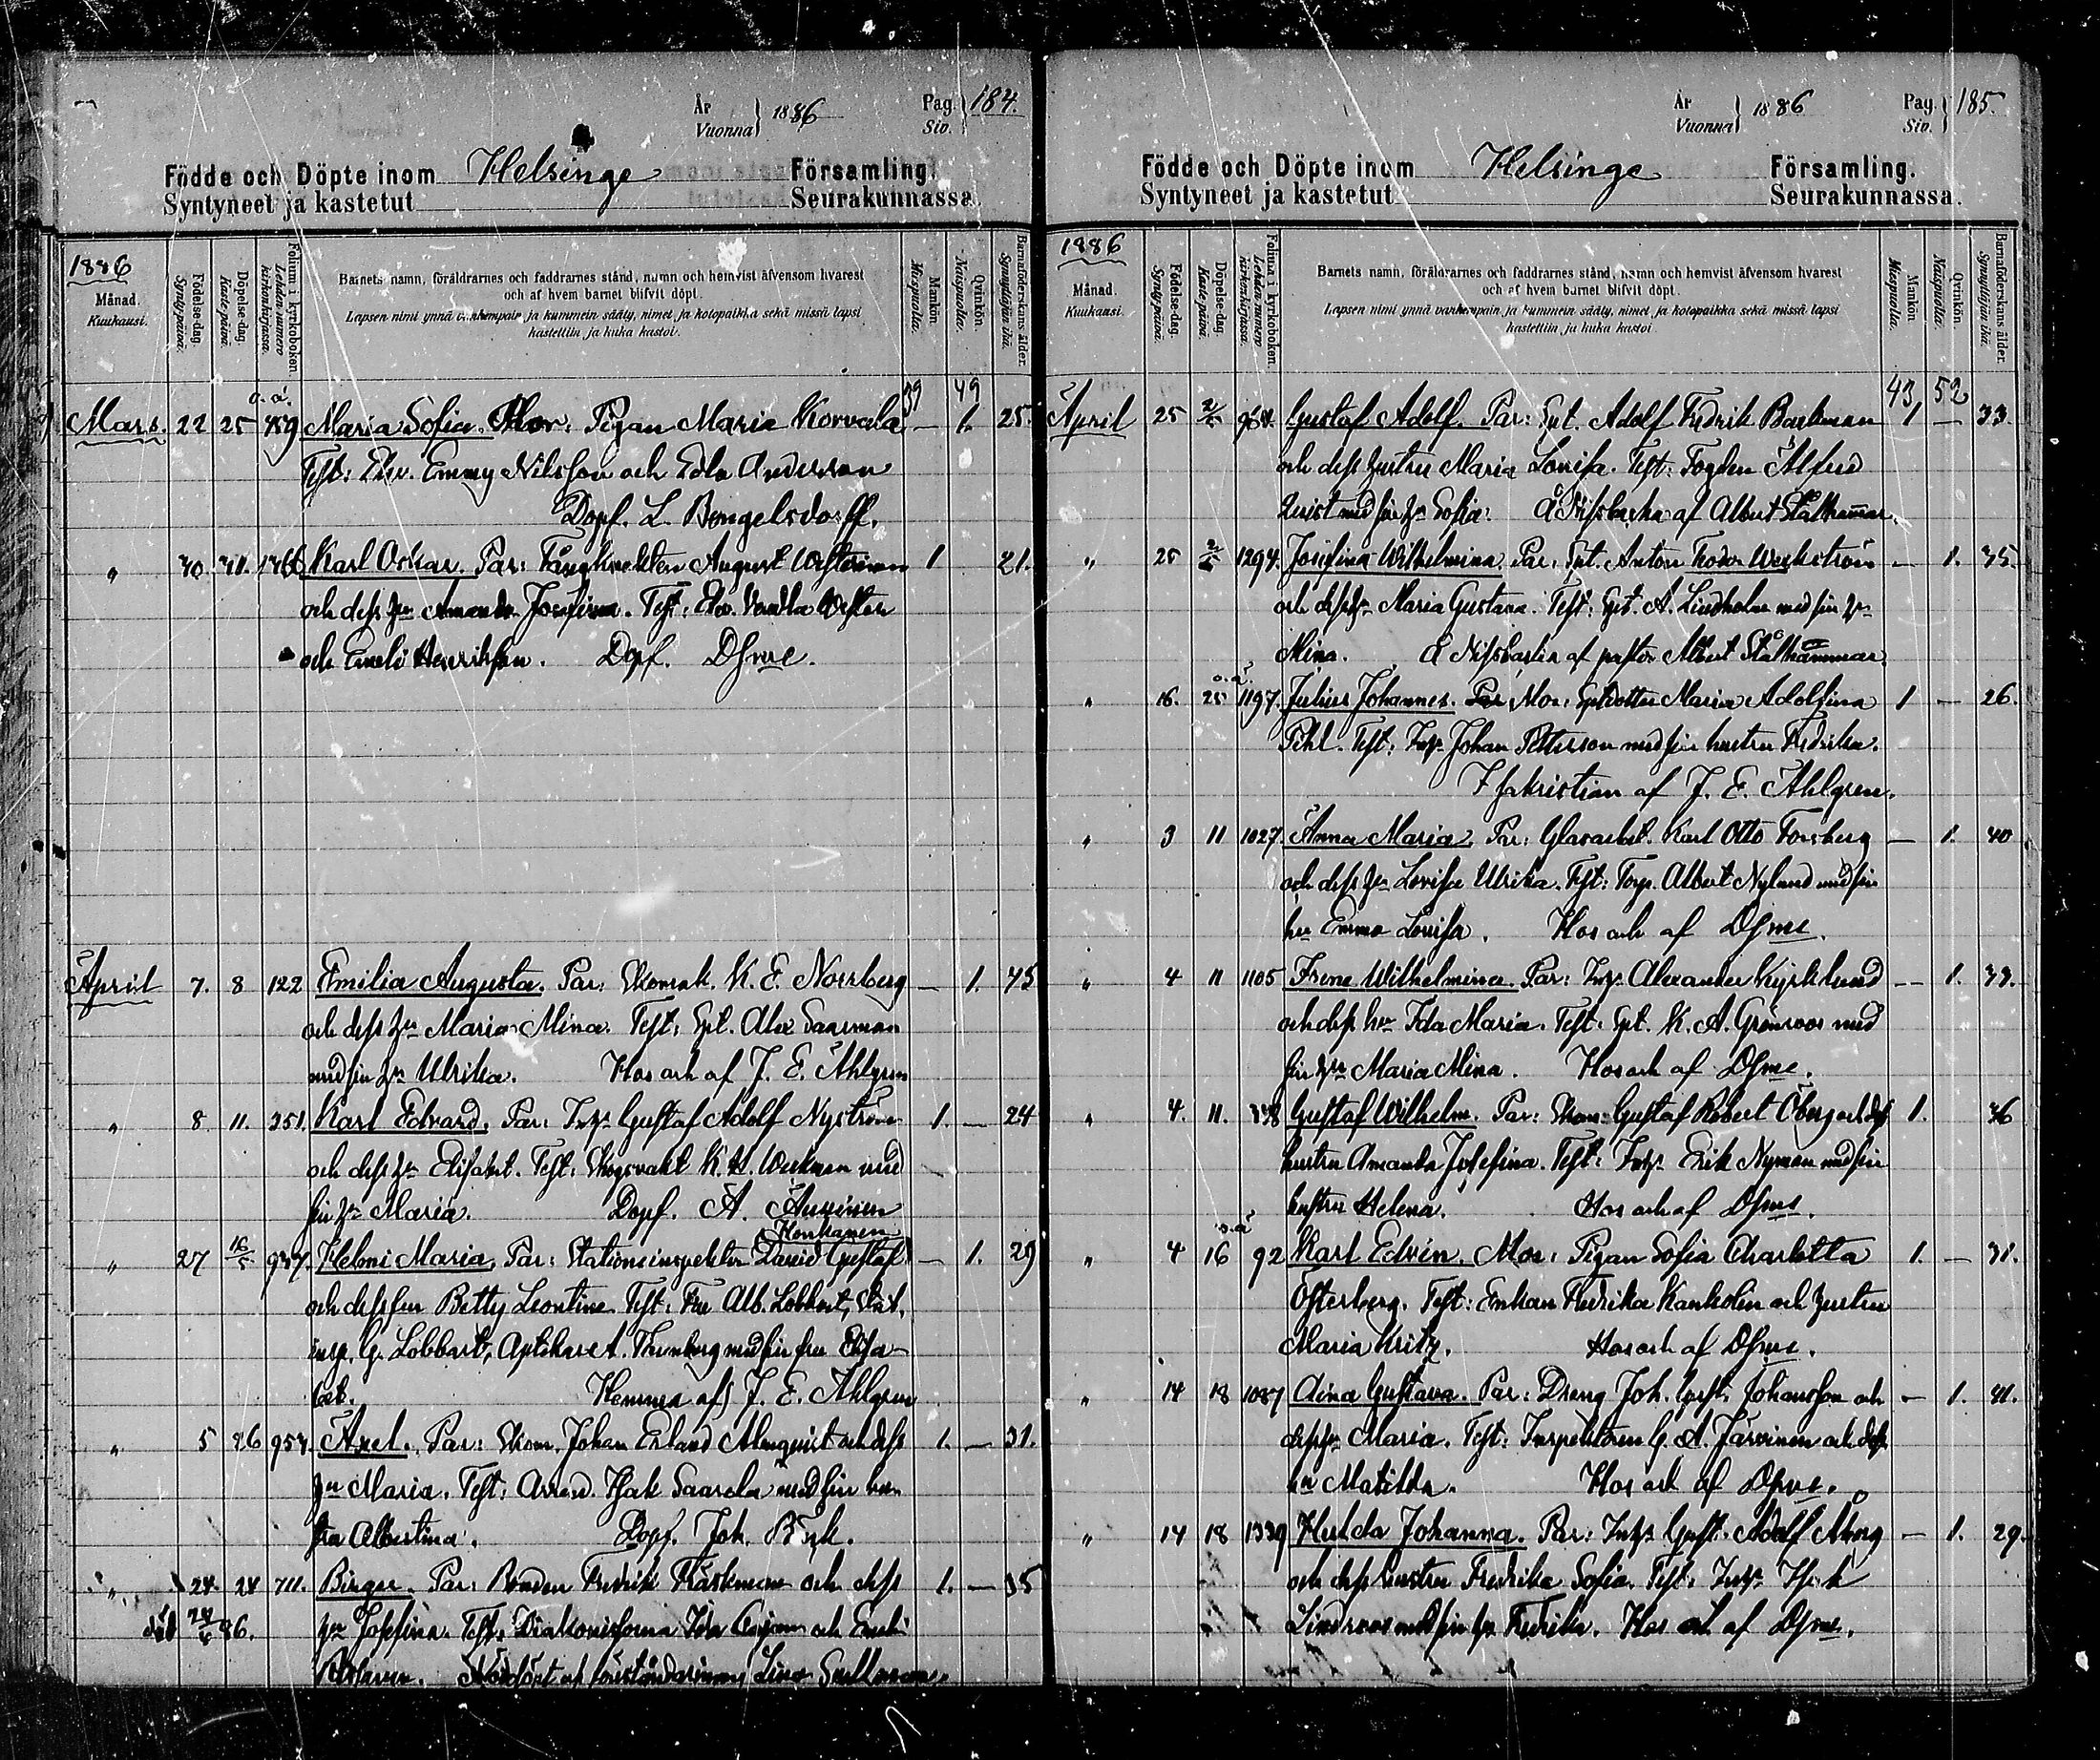 År
Vuonna } 1886
Pag.
Siv. } 184.
Födde och Döpte inom Helsinge Församling.
Syntyneet ja kastetut Seurakunnassa.
1886
Månad.
Kuukausi.
Födelse-dag.
Syntypäivä.
Döpelse-dag.
Kastepäivä.
Folium i kyrkoboken.
Lehden numero kirkonkirjassa.
Barnets namn, föräldrarnes och faddrarnes stånd, namn och hemvist äfvensom hvarest
och af hvem barnet blifvit döpt.
Lapsen nimi ynnä vanhempain ja kummein sääty, nimet ja kotopaikka sekä missä lapsi
kastettiin ja kuka kastoi.
Mankön.
Miespuolia.
Qvinkön.
Naispuolia.
Barnaföderskans ålder.
Synnyttäjän ikä.
o. ä. 39 49
Mars. 22 25 459 Maria Sofia. Mor: Pigan Maria Korvela — 1. 25.
Test: Elev. Emmy Nilsson och Edla Andersson
Dopf. L. Bengelsdorff.
" 30. 31. 1366 Karl Oskar. Par: Fångknekten August Westerman 1 21.
och dess hu Amanda Josefina. Test: Elev. Vendla Westen
och Emeli Henriksson. Dopf. Dsme.
April 7. 8 122 Emilia Augusta. Par: Skomak. K. E. Norrberg — 1. 45
och dess hu Maria Mina. Test: Spt. Alex Saarman
med sin hu Ulrika. Hos och af J. E. Åhlgren
" 8 11. 251. Karl Edvard. Par: Inhs. Gustaf Adolf Nyström 1. — 24
och dess hu Elisabet. Test: Skogsvakt K. H. Weckman med
sin hu Maria. Dopf. A. Auvinen
Honkanen
" 27 16/5 937. Helmi Maria. Par: Stationsinspektor David Gustaf — 1. 29
och dess fru Betty Leontine. Test: Fru Alb. Lobbert, Stat.
insp. G. Lobbart, Apotekare A. Thunberg med sin fru Elisa-
bet. Hemma af J. E. Åhlgren
" 5 26 954. Axel. Par: Skom. Johan Erland Almquist och dess 1. — 31.
hu Maria. Test: Arrend. Isak Saarela med sin hu
fru Albertina. Dopf. Joh. Bäck.
" 24. 24 711. Birger. Par: Bonden Fredrik Fläskman och dess 1. — 35
död 24/6 86. hu Josefina. Test: Diakonissorna Ida och Emeli
Nöddöpt af föreståndarinnan Lina Snellman
År
Vuonna } 1886
Pag.
Siv. } 185.
Födde och Döpte inom Helsinge Församling.
Syntyneet ja kastetut Seurakunnassa.
1886
Månad.
Kuukausi.
Födelse-dag.
Syntypäivä.
Döpelse-dag.
Kastepäivä.
Folium i kyrkoboken.
Lehden numero kirkonkirjassa.
Barnets namn, föräldrarnes och faddrarnes stånd, namn och hemvist äfvensom hvarest
och af hvem barnet blifvit döpt.
Lapsen nimi ynnä vanhempain ja kummein sääty, nimet ja kotopaikka sekä missä lapsi
kastettiin ja kuka kastoi.
Mankön.
Miespuolia.
Qvinkön.
Naispuolia.
Barnaföderskans ålder.
Synnyttäjän ikä.
43 52
April 25 2/5 Gustaf Adolf. Par: Spt. Adolf Fredrik Backman 1 — 33.
och dess hustru Maria Lovisa. Test: Fogden Alfred
Quist med sin hu Sofia. Å Nissbacka af Albert Stålhammar.
" 25 2/5 1294. Josefina Wilhelmina. Par: Spt. Anton Teodor Weckström — 1. 35.
och dess hu Maria Gustava. Test: Spt. A. Lindholm med sin hu
Mina. Å Nissbacka af pastor Albert Stålhammar
o. ä.
" 16. 25 1197. Julius Johannes. Par, Mor: Sptdotter Maria Adolfina 1 — 26.
Pihl. Test: Inhs. Johan Petterson med sin hustru Fredrika.
I sakristian af J. E. Åhlgren.
" 3 11 1027. Anna Maria. Par: Glasarbet. Karl Otto Forsberg — 1. 40
och dess hu Lovisa Ulrika. Test: Torp. Albert Nylund med sin
hu Emma Lovisa. Hos och af Dsme.
" 4 11 1105 Irene Wilhelmina. Par: Inhs. Alexander Kyrklund — 1. 33.
och dess hu Ida Maria. Test: Spt. K. A. Grönroos med
sin hu Maria Mina. Hos och af Dsme.
" 4. 11. 348 Gustaf Wilhelm. Par: Skom. Gustaf Robert Öberg och dess 1. 36
hustru Amanda Josefina. Test: Inhs. Erik Nyman med sin
hustru Helena. Hos och af Dsme.
o. ä.
" 4 16 92 Karl Edvin. Mor: Pigan Sofia Charlotta 1. — 31.
Österberg. Test: Enkan Fredrika Kankolin och hustru
Maria Kritz. Hos och af Dsme.
" 14 18 1087 Aina Gustava. Par: Dreng Joh. Gust. Johansson och — 1. 41.
dess hu Maria. Test: Inspektoren G. A. Järvinen och dess
hu Matilda. Hos och af Dsme.
" 14 18 1339 Hulda Johanna. Par: Inhs. Gust. Adolf Åberg — 1. 29.
och dess hustru Fredrika Sofia. Test: Inhs. Isak
Lindroos med sin hu Fredrika. Hos och af Dsme.